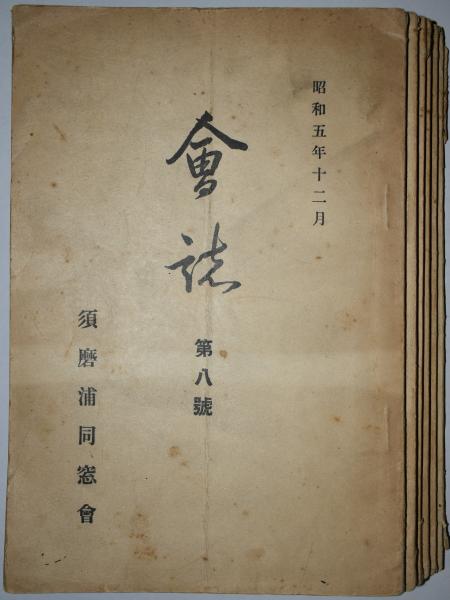 昭和五年十二月
會誌
第八號
須磨浦同窓會